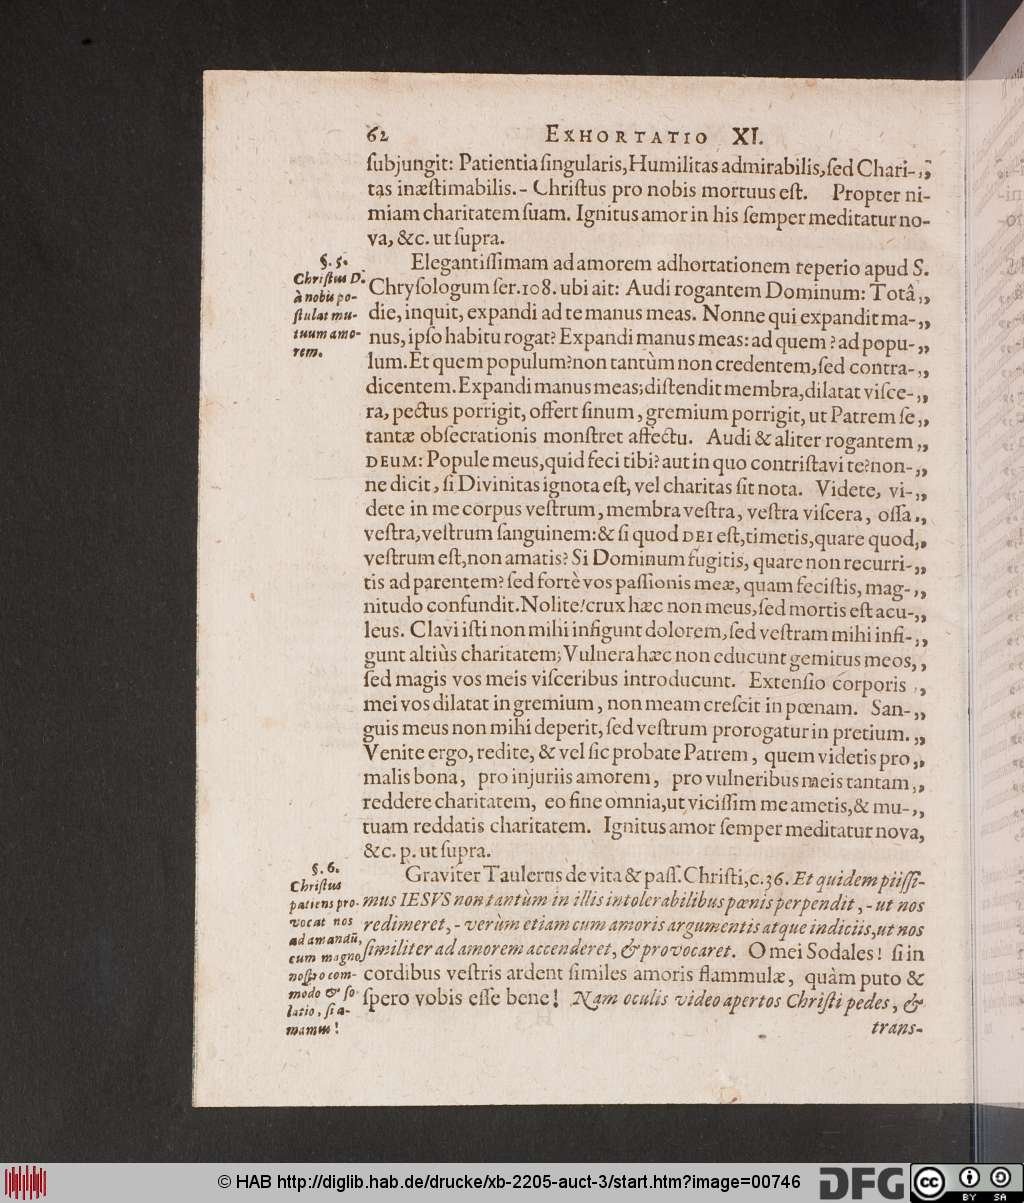 62 EXHORTATIO XI.
ſubjungit: Patientia ſingularis, Humilitas admirabilis, ſed Chari-„
tas inæſtimabilis. - Chriſtus pro nobis mortuus eſt. Propter ni-
miam charitatem ſuam. Ignitus amor in his ſemper meditatur no-
va, &c. ut ſupra.
§. 5.
Chriſtus D.
à nobis po-
ſtulat mu-
tuum amo-
rem.
Elegantiſſimam ad amorem adhortationem reperio apud S.
Chryſologum ſer. 108. ubi ait: Audi rogantem Dominum: Totâ „
die, inquit, expandi ad te manus meas. Nonne qui expandit ma-„
nus, ipſo habitu rogat? Expandi manus meas: ad quem? ad popu-„
lum. Et quem populum? non tantùm non credentem, ſed contra-„
dicentem. Expandi manus meas; diſtendit membra, dilatat viſce-„
ra, pectus porrigit, offert ſinum, gremium porrigit, ut Patrem ſe „
tantæ obſecrationis monſtret affectu. Audi & aliter rogantem „
DEUM: Popule meus, quid feci tibi? aut in quo contriſtavi te? non-„
ne dicit, ſi Divinitas ignota eſt, vel charitas ſit nota. Videte, vi-„
dete in me corpus veſtrum, membra veſtra, veſtra viſcera, oſſa „
veſtra, veſtrum ſanguinem: & ſi quod DEI eſt, timetis, quare quod „
veſtrum eſt, non amatis? Si Dominum fugitis, quare non recurri-„
tis ad parentem? ſed fortè vos paſſionis meæ, quam feciſtis, mag-„
nitudo confundit. Nolite! crux hæc non meus, ſed mortis eſt acu-„
leus. Clavi iſti non mihi infigunt dolorem, ſed veſtram mihi infi-„
gunt altiùs charitatem; Vulnera hæc non educunt gemitus meos, „
ſed magis vos meis viſceribus introducunt. Extenſio corporis „
mei vos dilatat in gremium, non meam creſcit in pœnam. San-„
guis meus non mihi deperit, ſed veſtrum prorogatur in pretium. „
Venite ergo, redite, & vel ſic probate Patrem, quem videtis pro „
malis bona, pro injuriis amorem, pro vulneribus meis tantam „
reddere charitatem, eo fine omnia, ut viciſſim me ametis, & mu-„
tuam reddatis charitatem. Ignitus amor ſemper meditatur nova,
&c. p. ut ſupra.
§. 6.
Chriſtus
patiens pro-
vocat nos
ad amandū,
cum magno
noſtro com-
modo & ſo-
latio, ſi a-
mamus!
Graviter Taulerus de vita & paſſ. Chriſti, c. 36. Et quidem piiſſi-
mus IESVS non tantùm in illis intolerabilibus pœnis perpendit, - ut nos
redimeret, - verùm etiam cum amoris argumentis atque indiciis, ut nos
ſimiliter ad amorem accenderet, & provocaret. O mei Sodales! ſi in
cordibus veſtris ardent ſimiles amoris flammulæ, quàm puto &
ſpero vobis eſſe bene! Nam oculis video apertos Chriſti pedes, &
trans-
© HAB http://diglib.hab.de/drucke/xb-2205-auct-3/start.htm?image=00746
DFG
cc BY SA